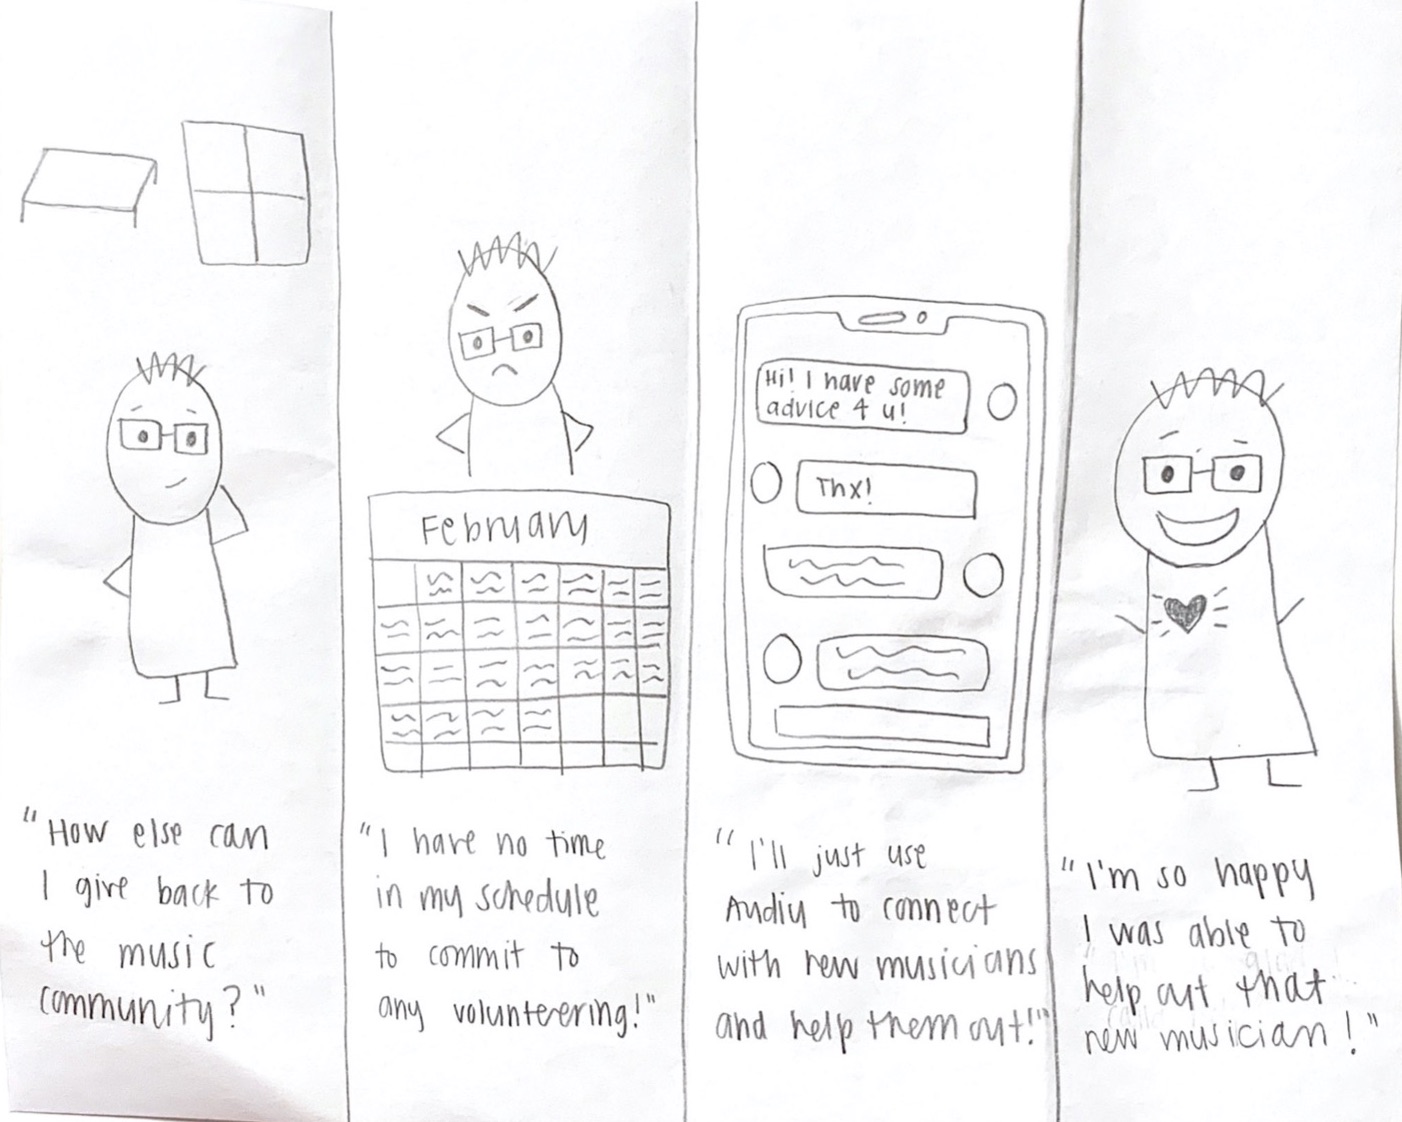 "How else can
I give back to
the music
community?"
February
"I have no time
in my schedule
to commit to
any volunteering!"
Hi! I have some
advice 4 u!
Thx!
"I'll just use
Audiy to connect
with new musicians
and help them out!"
"I'm so happy
I was able to
help out that
new musician!"